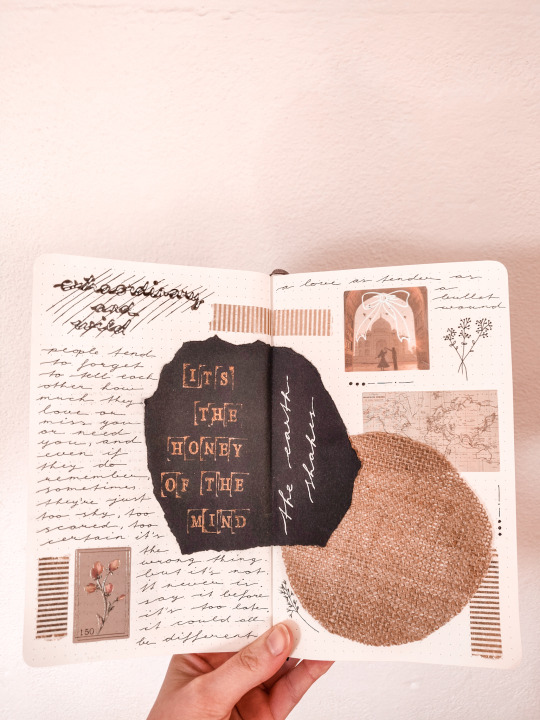 extraordinary
and
weird
people tend
to forget
to tell each
other how
much they
love or
miss you
or need
you, and
even if
they do
remember
sometimes
they're just
too shy, too
scared, too
certain it's
the
wrong thing.
but it's not.
it never is.
say it before
it's too late.
it could all
be different.
150
ITS
THE
HONEY
OF THE
MIND
the earth
shakes
a love as tender as
a
bullet
wound